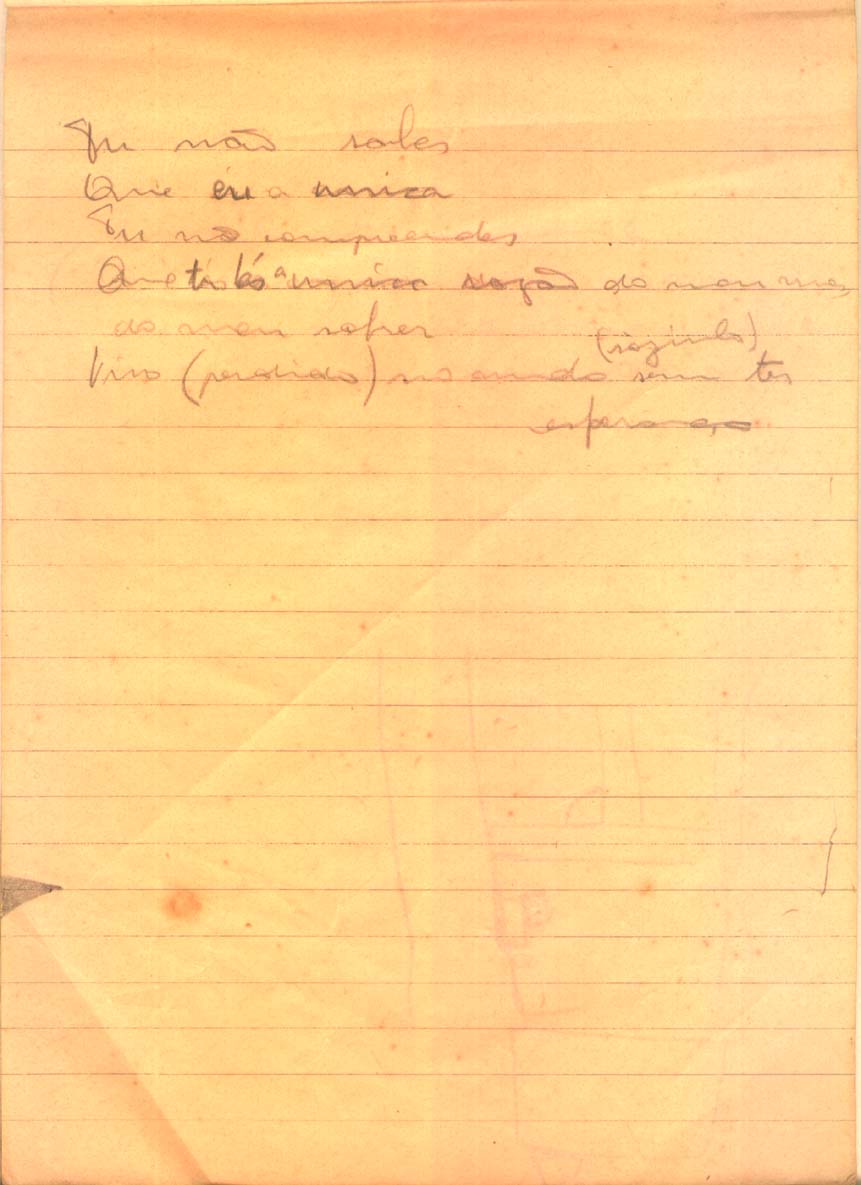 Tu não sabes
Que eu a unica
Tu não compreendes
Que tu és a unica razão do meu
do meu sofrer
(sozinho)
Vivo (perdido) no mundo sem ter
esperança